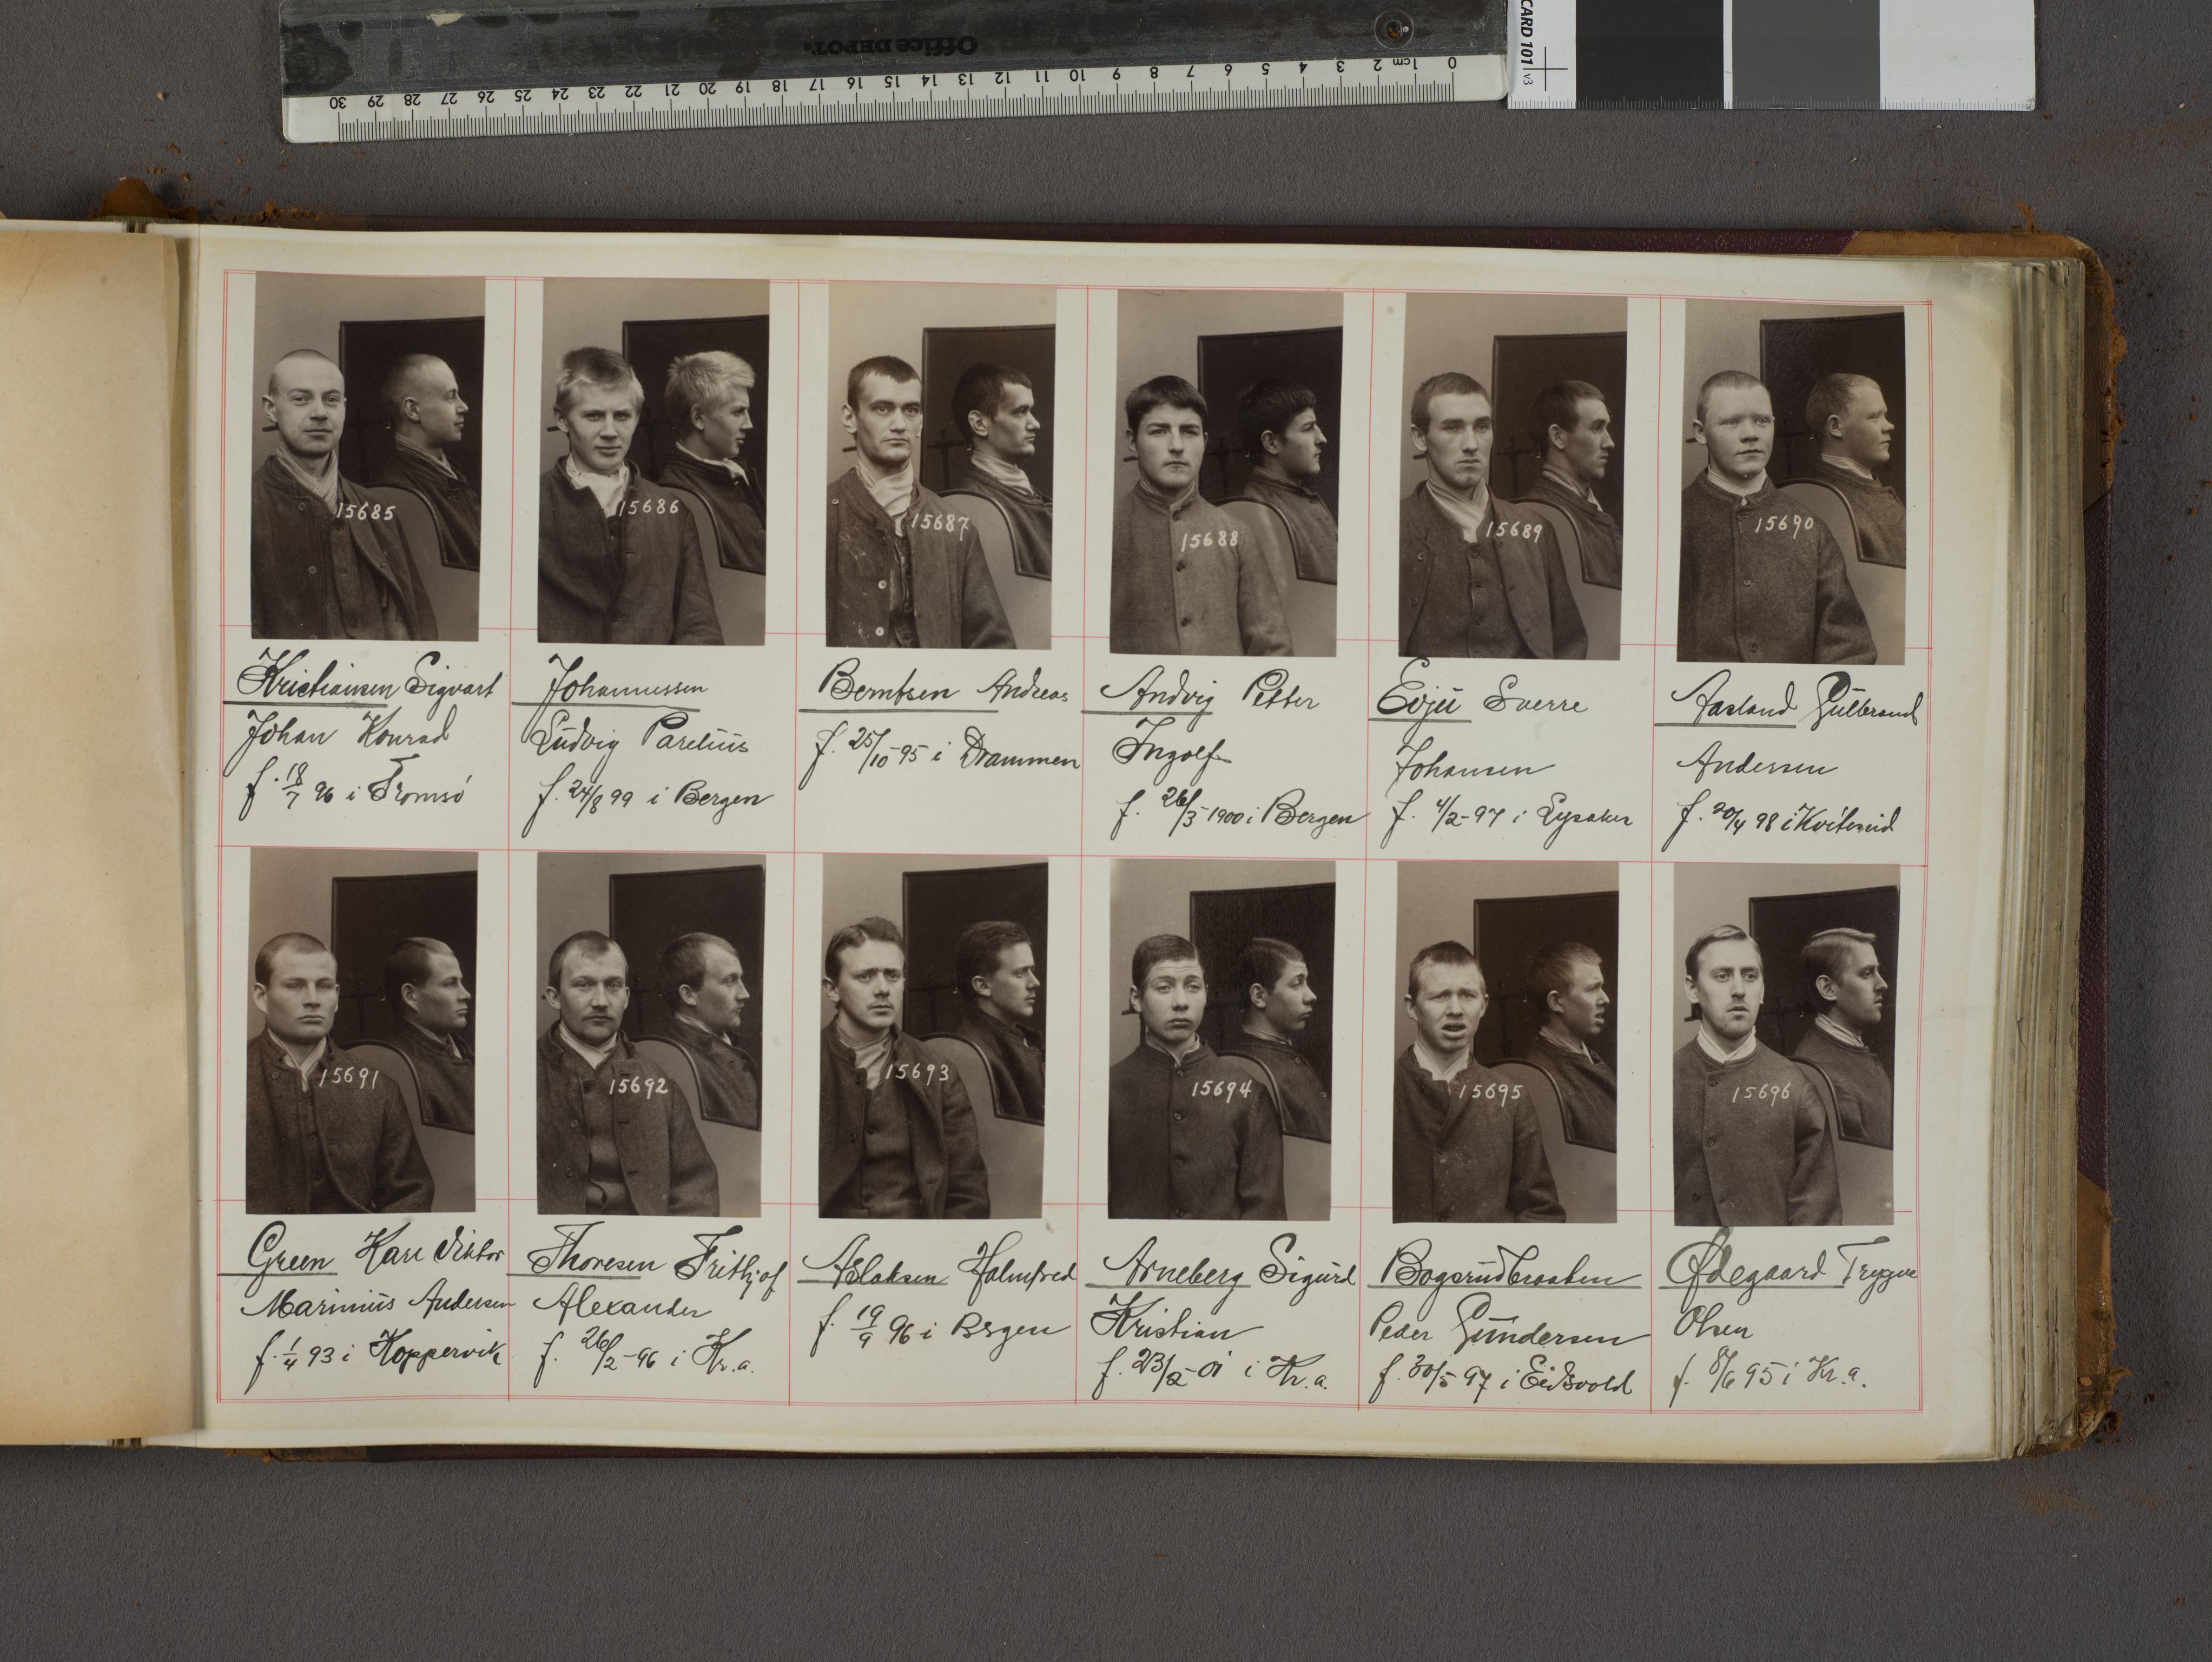 Office DEPOT.
CARD 101 v3
0 1cm 2 3 4 5 6 7 8 9 10 11 12 13 14 15 16 17 18 19 20 21 22 23 24 25 26 27 28 29 30
15685
15686
15687
15688
15689
15690
Kristiansen Sigvart
Johan Konrad
f. 18/7 96 i Tromsö
Johannessen
Ludvig Parelius
f. 24/8 99 i Bergen
Berntsen Andreas
f. 25/10-95 i Drammen
Andvig Petter
Ingolf
f. 26/3-1900 i Bergen
Evju Sverre
Johansen
f. 4/2-97 i Lysaker
Aasland Gulbrand
Andersen
f. 20/4 98 i Kviteseid
15691
15692
15693
15694
15695
15696
Green Karl Viktor
Marinius Andersen
f. 1/4 93 i Koppervik
Thoresen Frithjof
Alexander
f. 26/2-96 i Kr.a.
Aslaksen Halmfred
f. 19/9 96 i Bergen
Arneberg Sigurd
Kristian
f. 23/2-01 i Kr.a.
Bogsrudbraaten
Peder Gundersen
f. 30/5-97 i Eidsvold
Ødegaard Trygve
Olsen
f. 8/6 95 i Kr.a.